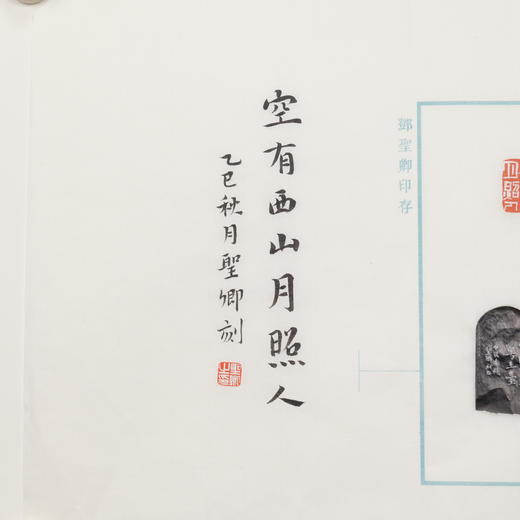 鄧聖卿印存
空有西山月照人
乙巳秋月聖卿刻